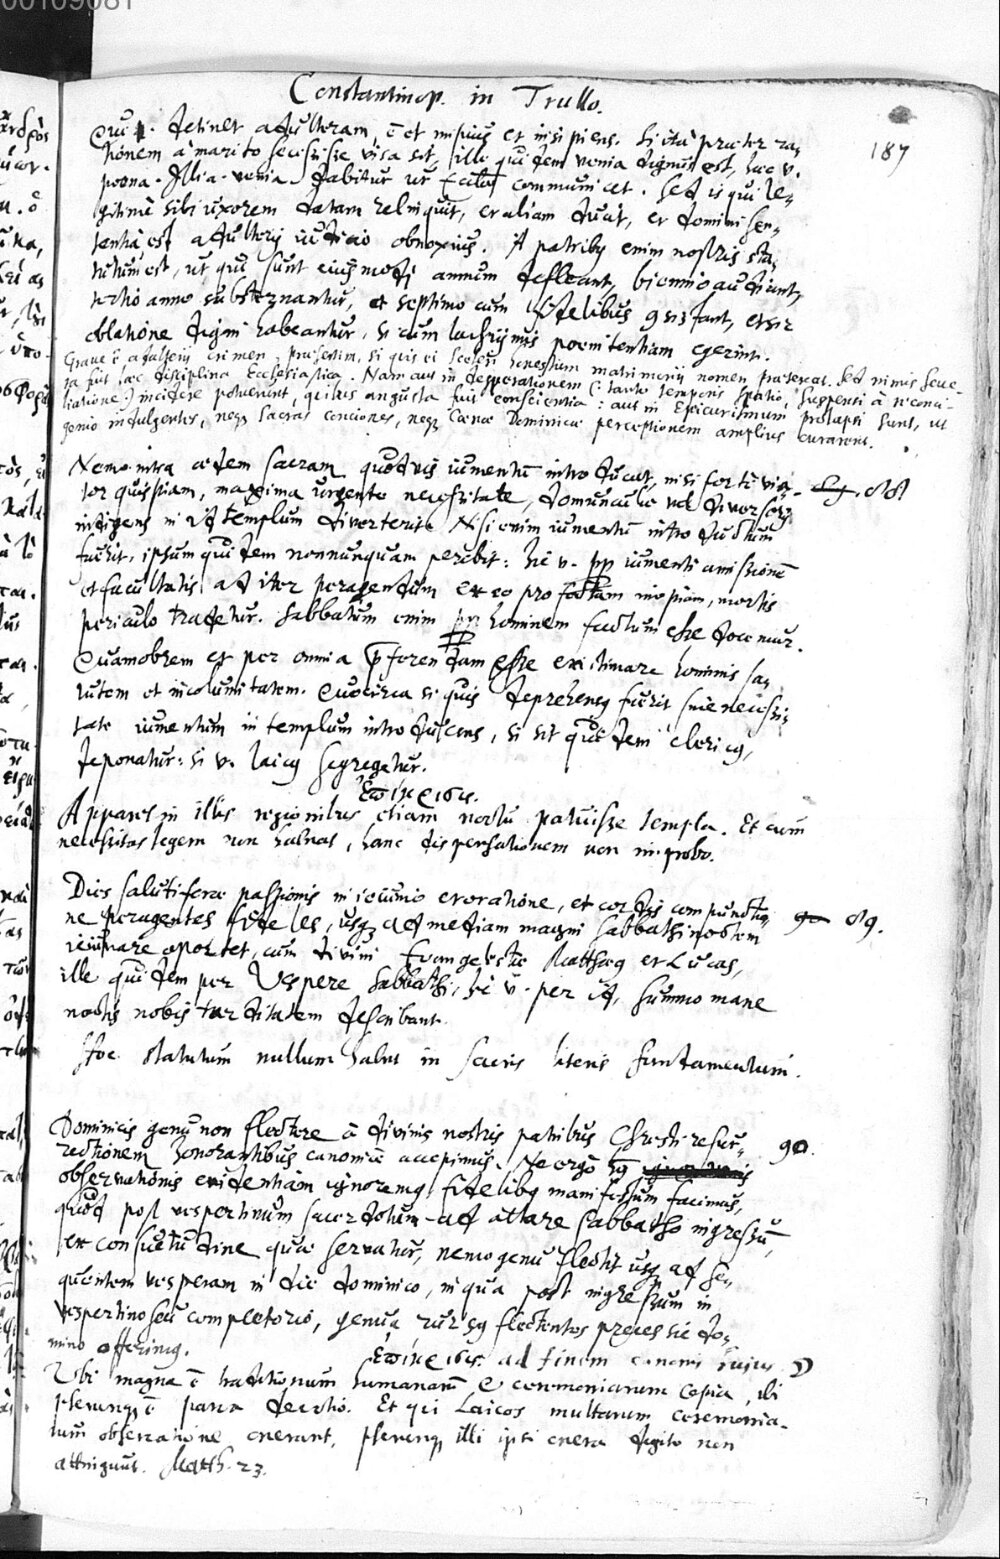 00109081
Constantinop. in Trullo.
187
Qui detinet adulteram, ē et impius et insipiens. Si ita praeter ra=
tionem à marito secessisse visa sit, ille quidem venia dignus est, haec v.
poena. Illi a. venia dabitur ut Eccliae communicet. Sed is qui le=
gitimè sibi uxorem datam relinquit, et aliam ducit, ex domini sen=
tentia est adulterij iudicio obnoxius. A patribus enim nostris sta=
tutum est, ut qui sunt eiusmodi annum defleant, biennio audiant,
tertio anno substernantur, et septimo cum fidelibus consistant, et sic
oblatione digni habeantur, si cum lachrymis poenitentiam egerint.
Grave ē adulterij crimen, praesertim, si quis ei sceleri honestum matrimonij nomen praetexat. Sed nimis seve=
ra fuit haec disciplina Ecclesiastica. Nam aut in desperationem (: tanto temporis spatio, suspensi à reconci=
liatione:) incidere potuerunt, quibus angusta fuit conscientia: aut in Epicurismum prolapsi sunt, ut
genio indulgentes, neq sacras conciones, neq Coenae Dominicae perceptionem amplius curarent.
Nemo intra aedem sacram quodvis iumentū introducat, nisi fortè via=
88
tor quispiam, maxima urgente necessitate, domunculae vel diversorij
indigens in id templum diverterit. Nisi enim iumentū introductum
fuerit, ipsum quidem nonnunquam peribit: hic v. pp iumenti amissionē
et facultatis ad iter peragendum ex eo profectam inopiam, mortis
periculo tradetur. Sabbatum enim pp hominem factum esse docemur.
Quamobrem et per omnia pferendam esse existimare hominis sa=
lutem et incolumitatem. Quocirca si quis deprehensq fuerit sine necessi=
tate iumentum in templum introducens, si sit quidem clericq,
deponatur: si v. laicq segregetur.
Ἐπίκρισις.
Apparet in illis regionibus etiam noctu patuisse templa. Et cum
necessitas legem non habeat, hanc dispensationem non improbo.
Dies salutiferae passionis in ieiunio et oratione, et cordis compunctio=
89.
ne peragentes fideles, usq ad mediam magni Sabbathi noctem
ieiunare oportet, cum divini Evangelistae Matthaeq et Lucas,
ille quidem per Vespere Sabbathi, hic v. per id, summo mane
noctis nobis tarditatem describant.
Hoc statutum nullum habet in sacris literis fundamentum.
Dominicis genu non flectere à divinis nostris patribus Christi resur=
90.
rectionem honorantibus canonicè accepimus. Ne ergo hq
observationis evidentiam ignoremq fidelibq manifestum facimus,
quod post vespertinum sacerdotum ad altare Sabbatho ingressū,
ex consuetudine quae servatur, nemo genu flectit usq ad se=
quentem vesperam in die dominico, in qua post ingressum in
vespertino seu completorio, genua rursq flectentes preces sic do=
mino offerimq.
Ἐπίκρισις ad finem canonis hujus
Ubi magna ē traditionum humanarū & ceremoniarum copia, ibi
plerunq ē parva devotio. Et qui Laicos multarum ceremonia=
rum observatione onerant, plerunq illi ipsi onera digito non
attingunt. Matth. 23.